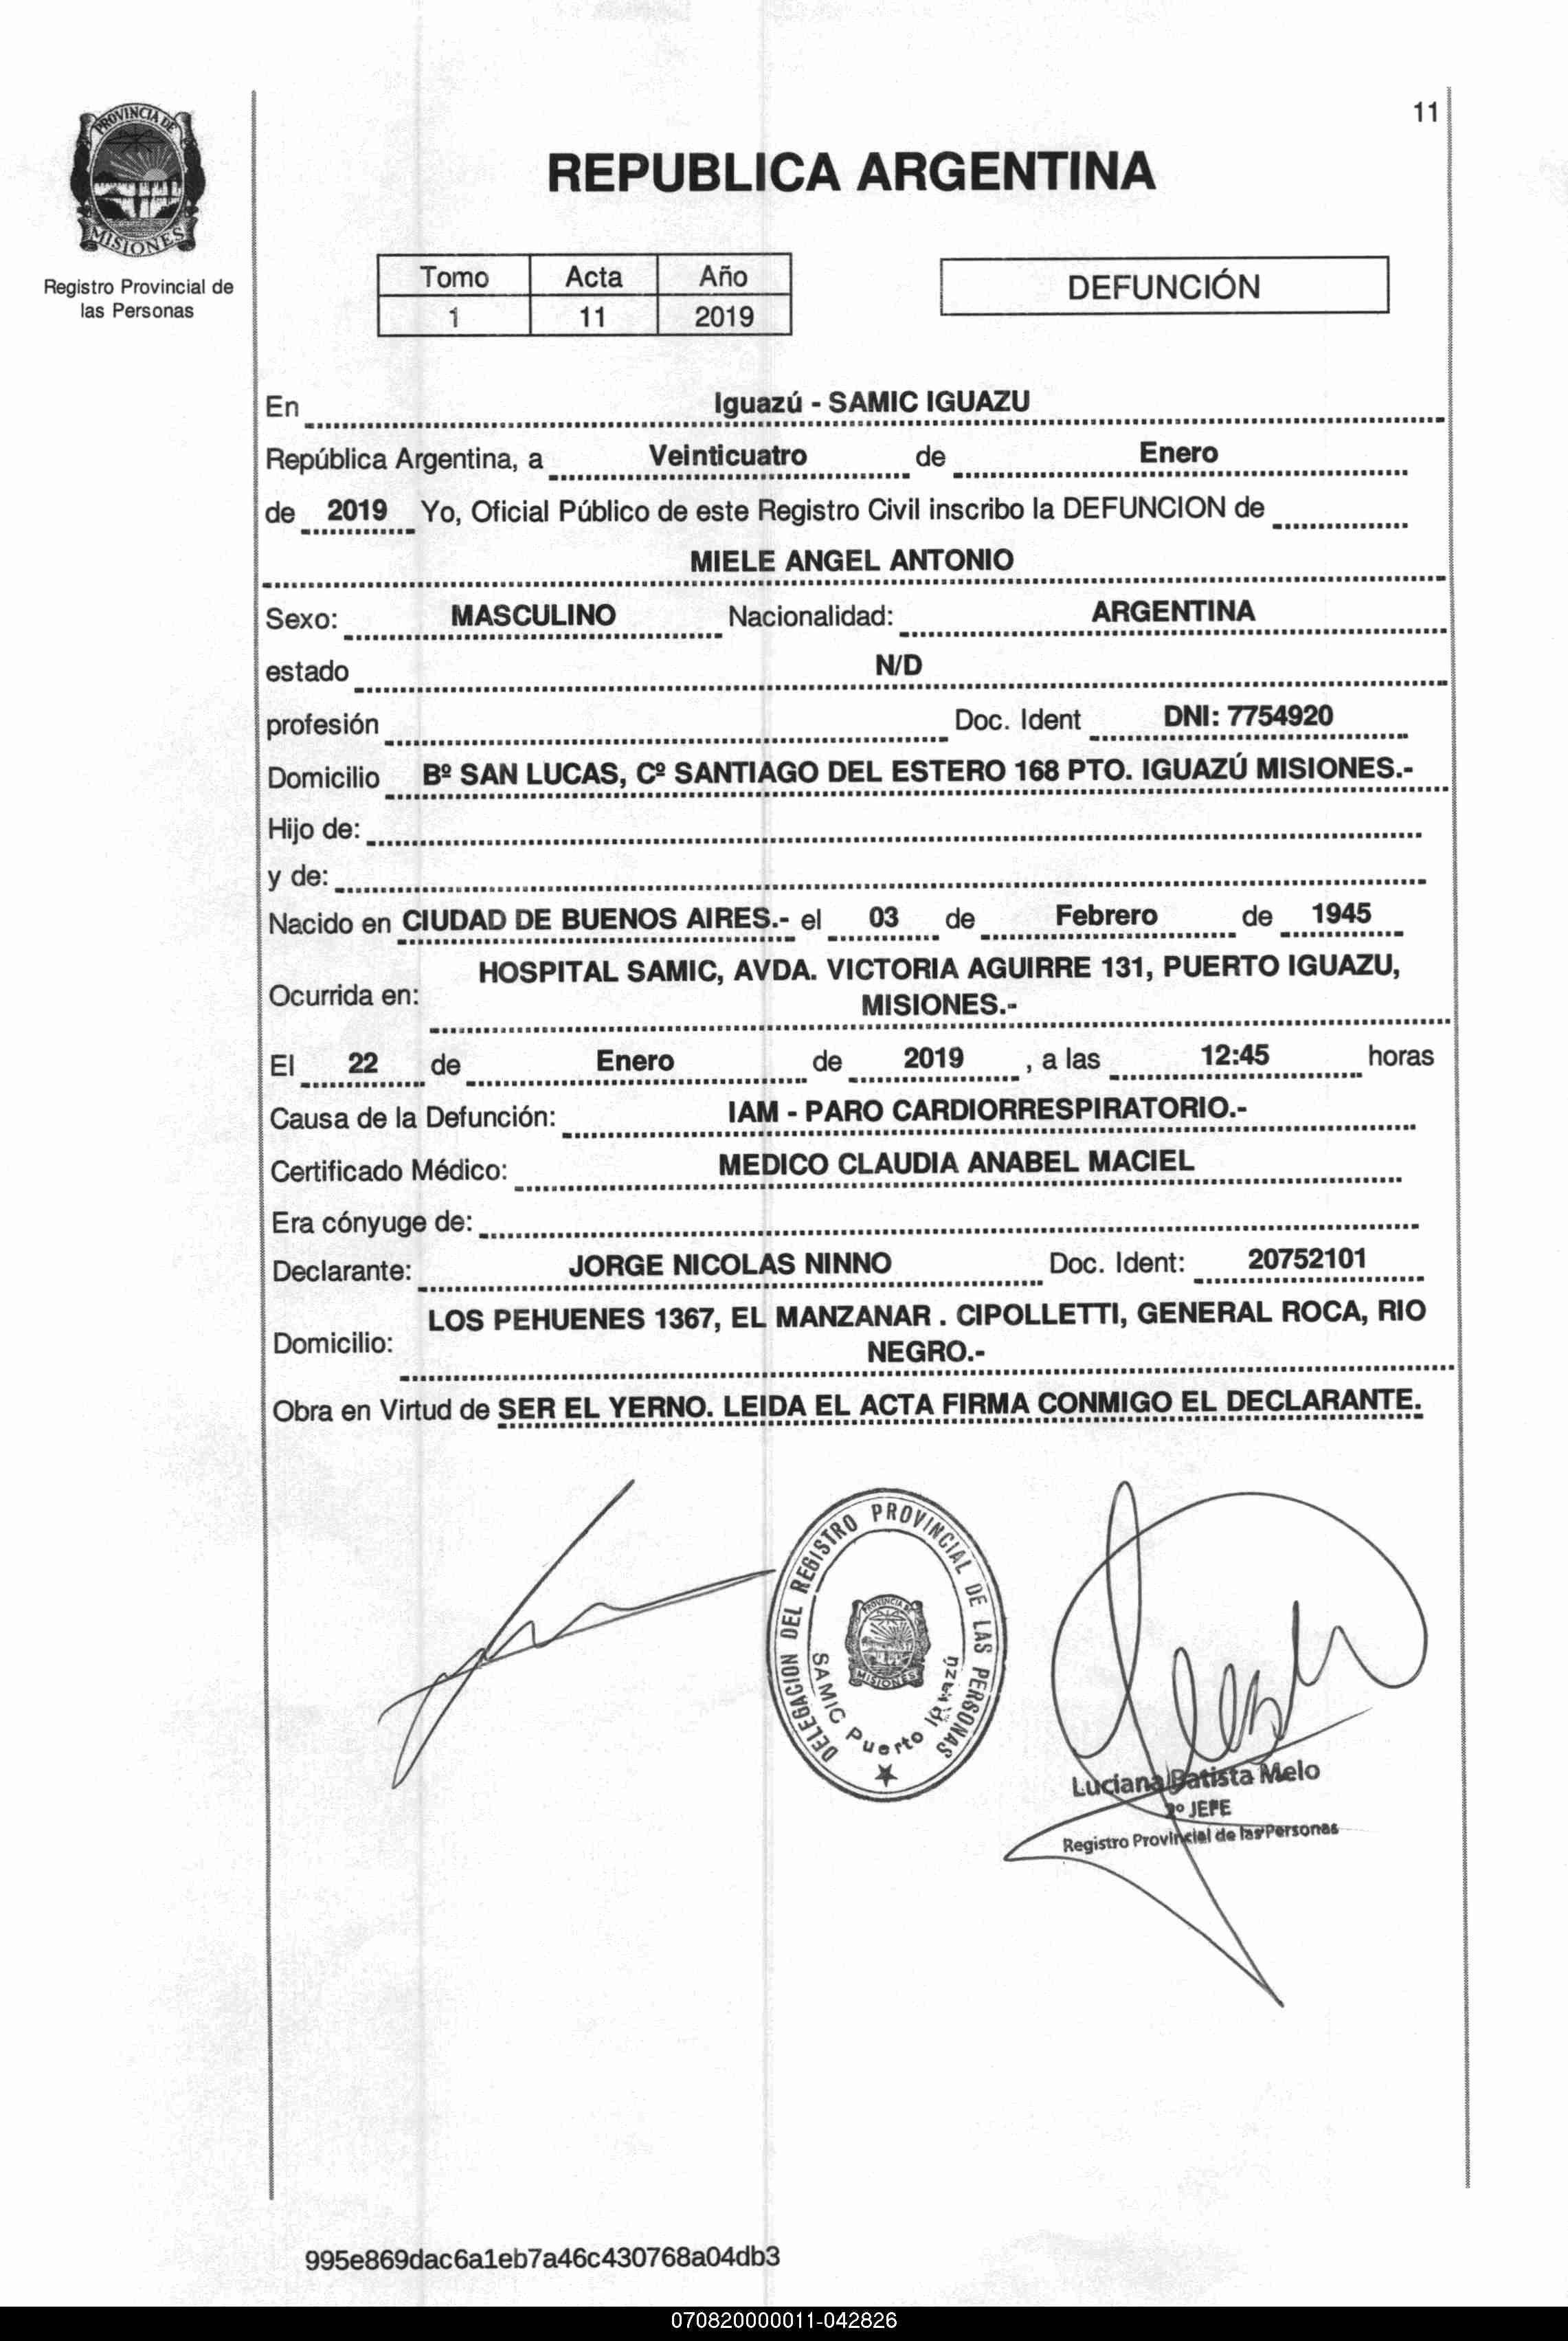 11
PROVINCIA DE
MISIONES
Registro Provincial de
las Personas
REPUBLICA ARGENTINA
Tomo Acta Año
1 11 2019
DEFUNCIÓN
En Iguazú - SAMIC IGUAZU
República Argentina, a Veinticuatro de Enero
de 2019 Yo, Oficial Público de este Registro Civil inscribo la DEFUNCION de
MIELE ANGEL ANTONIO
Sexo: MASCULINO Nacionalidad: ARGENTINA
estado N/D
profesión Doc. Ident DNI: 7754920
Domicilio Bº SAN LUCAS, Cº SANTIAGO DEL ESTERO 168 PTO. IGUAZÚ MISIONES.-
Hijo de:
y de:
Nacido en CIUDAD DE BUENOS AIRES.- el 03 de Febrero de 1945
Ocurrida en: HOSPITAL SAMIC, AVDA. VICTORIA AGUIRRE 131, PUERTO IGUAZU,
MISIONES.-
El 22 de Enero de 2019 , a las 12:45 horas
Causa de la Defunción: IAM - PARO CARDIORRESPIRATORIO.-
Certificado Médico: MEDICO CLAUDIA ANABEL MACIEL
Era cónyuge de:
Declarante: JORGE NICOLAS NINNO Doc. Ident: 20752101
Domicilio: LOS PEHUENES 1367, EL MANZANAR . CIPOLLETTI, GENERAL ROCA, RIO
NEGRO.-
Obra en Virtud de SER EL YERNO. LEIDA EL ACTA FIRMA CONMIGO EL DECLARANTE.
DELEGACION DEL REGISTRO PROVINCIAL DE LAS PERSONAS
SAMIC Puerto Iguazú
PROVINCIA DE
MISIONES
Luciana Batista Melo
2º JEFE
Registro Provincial de las Personas
995e869dac6a1eb7a46c430768a04db3
070820000011-042826